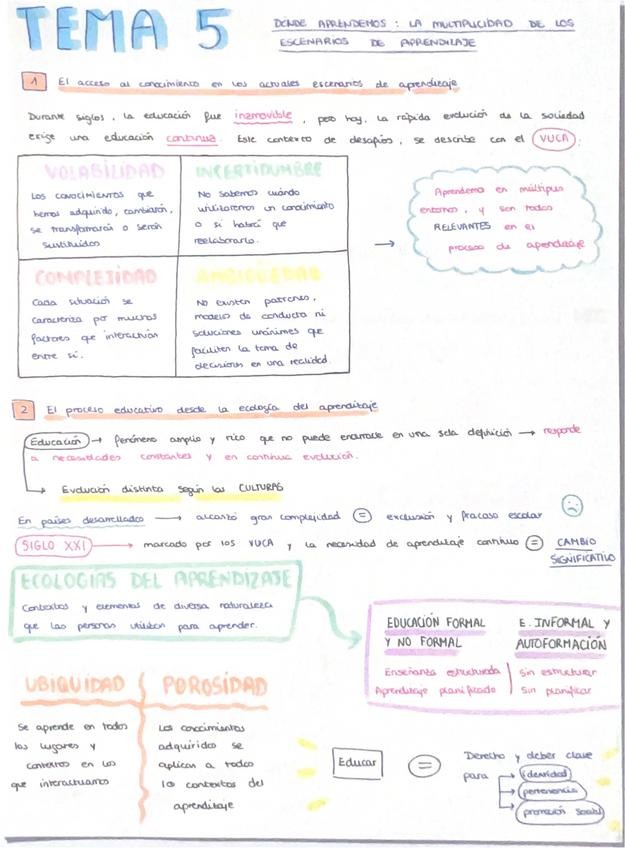 TEMA 5
DÓNDE APRENDEMOS: LA MULTIPLICIDAD DE LOS
ESCENARIOS DE APRENDIZAJE
1 El acceso al conocimiento en los actuales escenarios de aprendizaje
Durante siglos, la educación fue inamovible, pero hoy, la rápida evolución de la sociedad
exige una educación continua. Este contexto de desafíos, se describe con el VUCA:
VOLABILIDAD
Los conocimientos que
hemos adquirido, cambiarán,
se transformarán o serán
sustituidos
INCERTIDUMBRE
No sabemos cuándo
utilizaremos un conocimiento
o si habrá que
reelaborarlo.
COMPLEJIDAD
Cada situación se
caracteriza por muchos
factores que interactúan
entre sí.
AMBIGÜEDAD
No existen patrones,
modelos de conducta ni
soluciones unánimes que
faciliten la toma de
decisiones en una realidad.
→
Aprendemos en múltiples
entornos, y son todos
RELEVANTES en el
proceso de aprendizaje
2 El proceso educativo desde la ecología del aprendizaje
Educación → fenómeno amplio y rico que no puede encerrarse en una sola definición → responde
a necesidades constantes y en continua evolución.
Evolución distinta según las CULTURAS
En países desarrollados → alcanzó gran complejidad = exclusión y fracaso escolar
SIGLO XXI → marcado por los VUCA y la necesidad de aprendizaje continuo = CAMBIO
SIGNIFICATIVO
ECOLOGÍAS DEL APRENDIZAJE
Contextos y elementos de diversa naturaleza
que las personas utilizan para aprender.
EDUCACIÓN FORMAL
Y NO FORMAL
Enseñanza estructurada
Aprendizaje planificado
E. INFORMAL Y
AUTOFORMACIÓN
Sin estructurar
Sin planificar
UBIQUIDAD
Se aprende en todos
los lugares y
contextos en los
que interactuamos
POROSIDAD
Los conocimientos
adquiridos se
aplican a todos
los contextos del
aprendizaje
Educar = Derecho y deber clave
para
identidad
pertenencia
promoción social